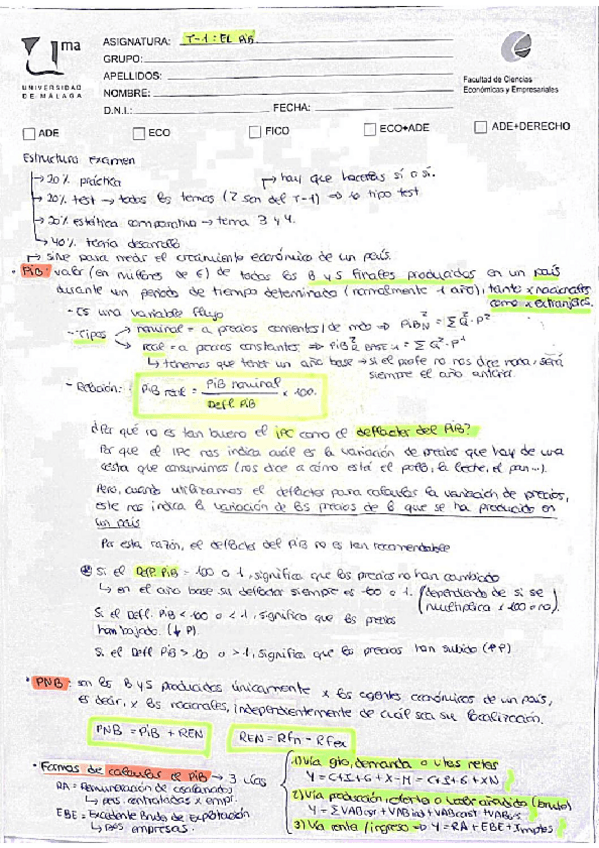 uma
UNIVERSIDAD
DE MÁLAGA
ASIGNATURA: T-1: EL PiB.
GRUPO:
APELLIDOS:
NOMBRE:
D.N.I.: FECHA:
Facultad de Ciencias
Económicas y Empresariales
ADE ECO FICO ECO+ADE ADE+DERECHO
Estructura examen
↳ 20% práctica → hay que hacerlas sí o sí.
↳ 20% test → todos los temas (2 son del T-1) ⇒ 10 tipo test
↳ 20% estática comparativa → tema 3 y 4.
↳ 40% teoría desarrollo
→ sirve para medir el crecimiento económico de un país.
• PiB: valor (en millones de €) de todos los B y S finales producidos en un país
durante un periodo de tiempo determinado (normalmente 1 año), tanto x nacionales
como x extranjeros.
- Es una variable flujo
- Tipos → nominal = a precios corrientes/de mdo ⇒ PiB²N = ΣQ²·P²
→ real = a precios constantes ⇒ PiB²R BASE 1 = ΣQ²·P¹
↳ tenemos que tener un año base → si el profe no nos dice nada, será
siempre el año anterior.
- Relación: PiB real = PiB nominal / Defl. PiB x 100.
¿Por qué no es tan bueno el iPC como el deflactor del PiB?
Por que el IPC nos indica cuál es la variación de precios que hay de una
cesta que consumimos (nos dice a cómo está el pollo, la leche, el pan...).
Pero, cuando utilizamos el deflactor para calcular la variación de precios,
este nos indica la variación de los precios de lo que se ha producido en
un país
Por esta razón, el deflactor del PiB no es tan recomendable
Si el Defl. PiB = 100 o 1, significa que los precios no han cambiado
↳ en el año base su deflactor siempre es 100 o 1. (dependiendo de si se
multiplica x 100 o no).
Si el Defl PiB < 100 o < 1, significa que los precios
han bajado. (↓P).
Si el Defl PiB > 100 o > 1, significa que los precios han subido (↑P)
• PNB: son los B y S producidos únicamente x los agentes económicos de un país,
es decir, x los nacionales, independientemente de cuál sea su localización.
PNB = PiB + REN REN = Rfn - Rfex
• Formas de calcular el PiB → 3 vías
RA = Remuneración de asalariados
↳ pers. contratadas x empr.
EBE = Excedente Bruto de Explotación
↳ empresas.
1) Vía gto, demanda o vtas netas
Y = C+I+G+X-M = C+I+G+XN
2) Vía producción, oferta o valor añadido (bruto)
3) Vía renta/ingreso ⇒ Y = RA + EBE + Imptos